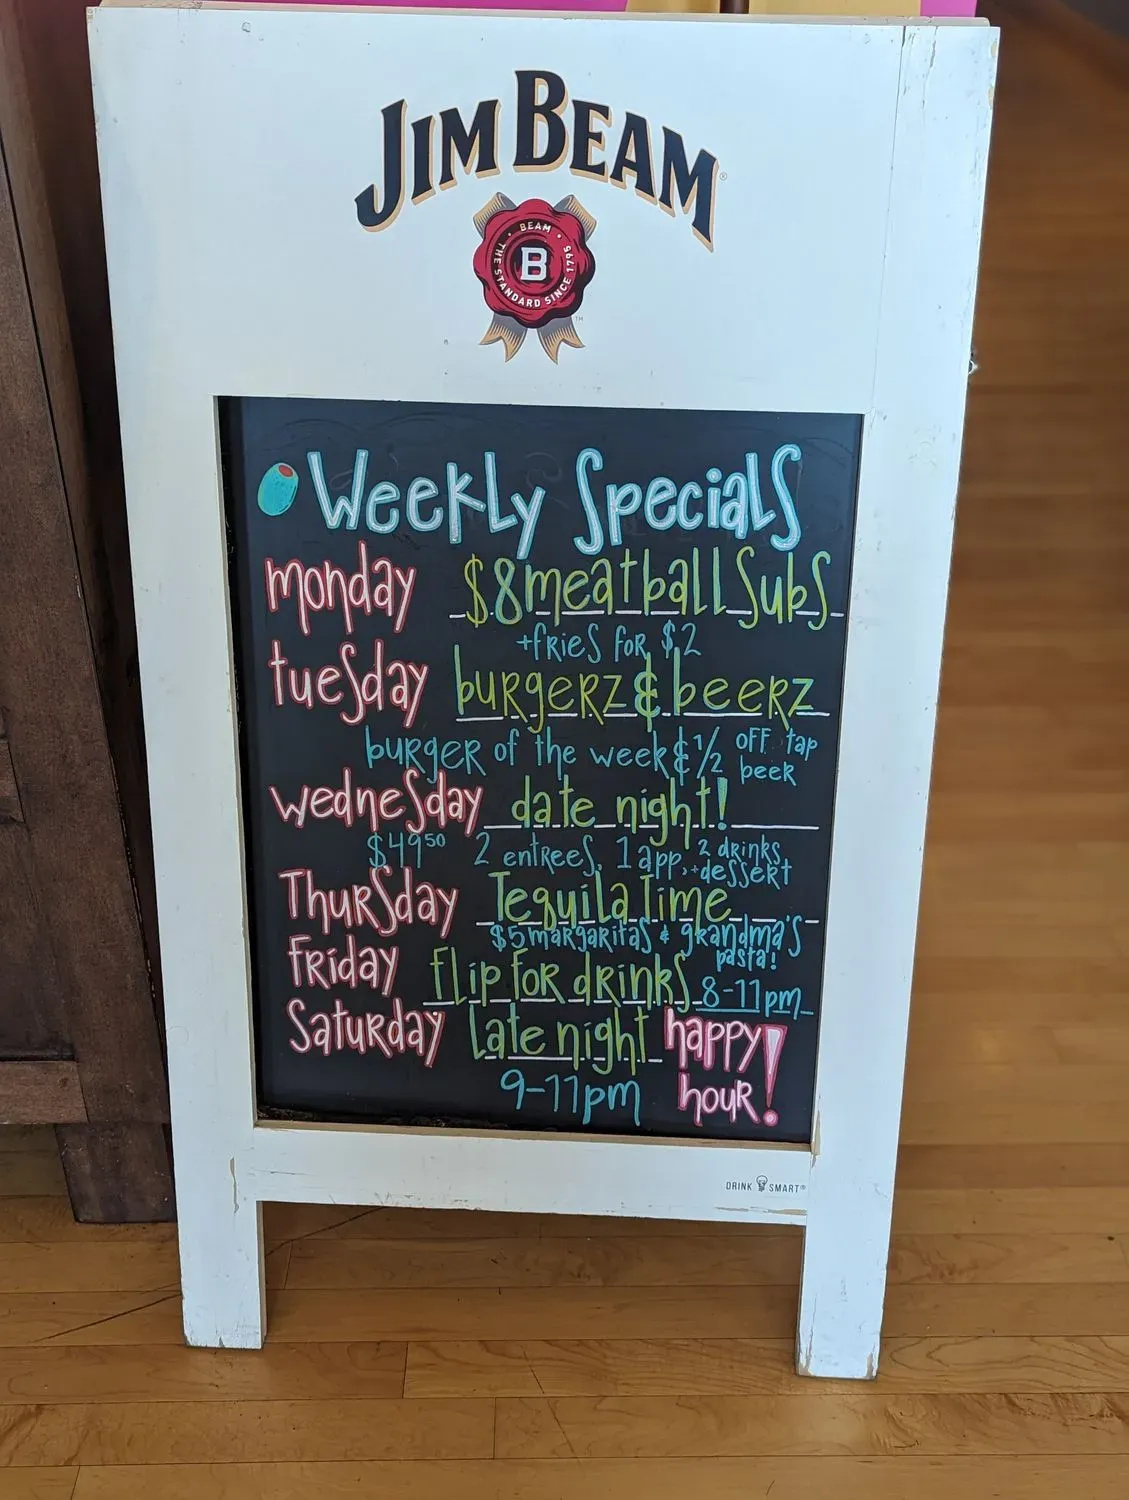 JIM BEAM®
BEAM
B
THE STANDARD SINCE 1795
™
Weekly Specials
monday $8 meatball subs
+fries for $2
tuesday burgerz & beerz
burger of the week & 1/2 OFF tap
beer
wednesday date night!
$49⁵⁰ 2 entrees, 1 app, 2 drinks
+dessert
Thursday Tequila Time
$5 margaritas & grandma's
pasta!
friday flip for drinks 8-11pm
Saturday Late night happy
9-11pm hour!
DRINK SMART®